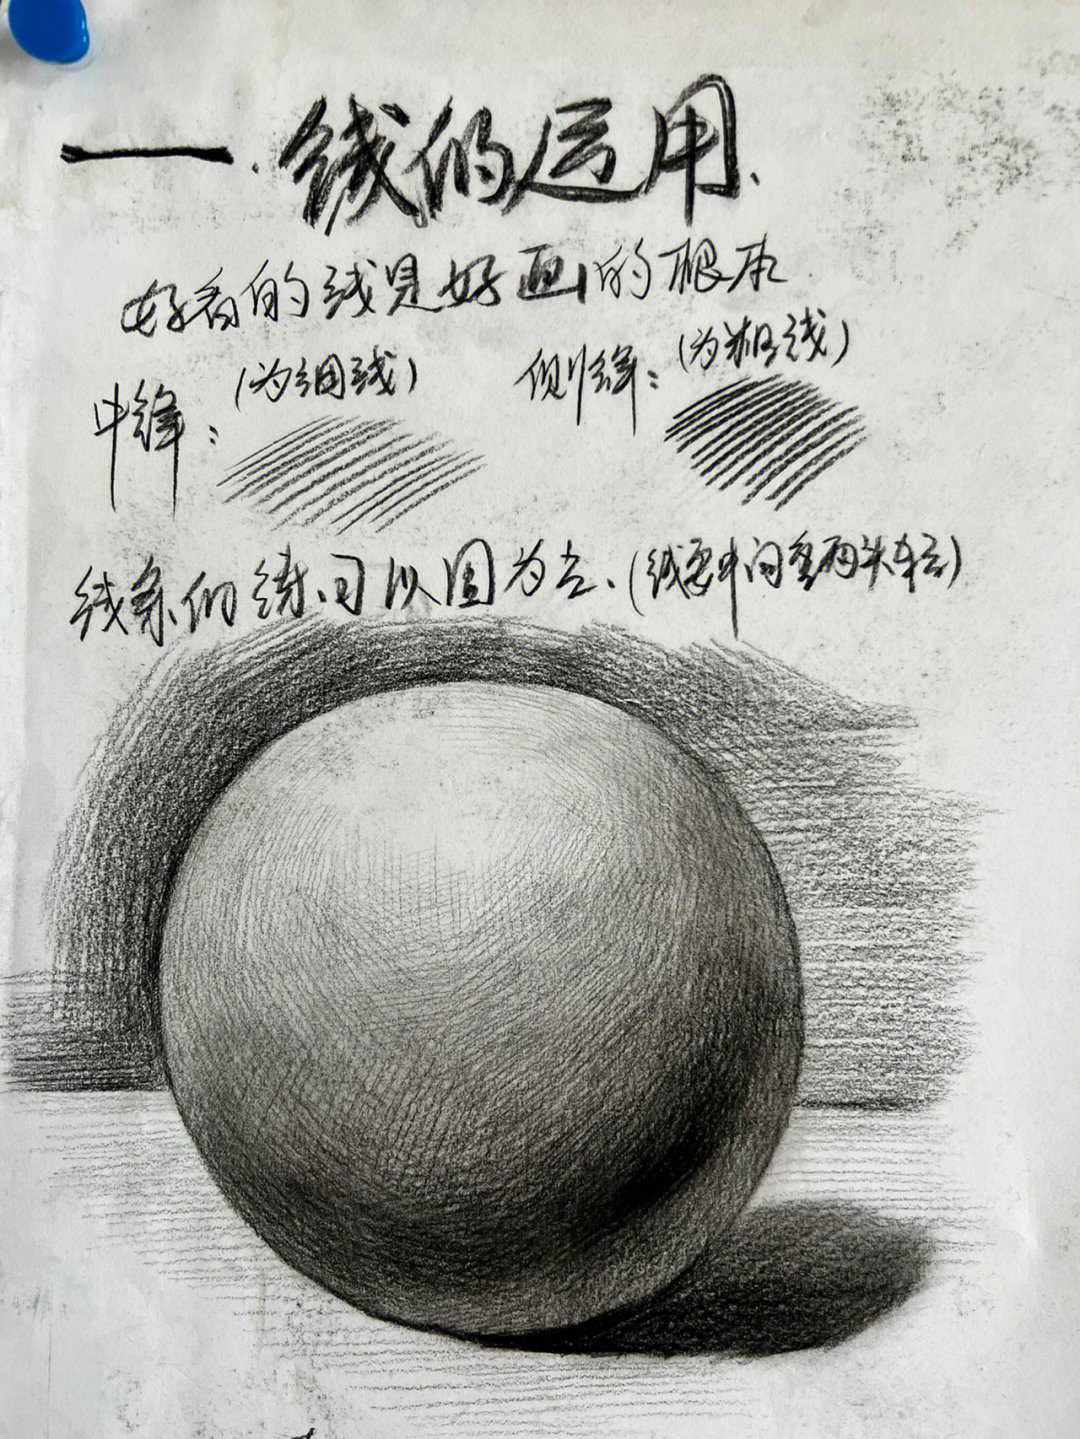 一.线的运用.
好看的线是好画的根本
中锋：(为细线) 侧锋：(为粗线)
线条的练习以圆为主.(线要中间重两头轻)